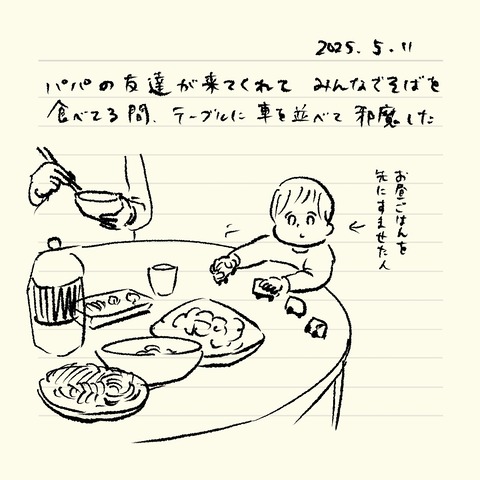 2025.5.11
パパの友達が来てくれて みんなでそばを
食べてる間、テーブルに車を並べて邪魔した
お昼ごはんを
先にすませた人